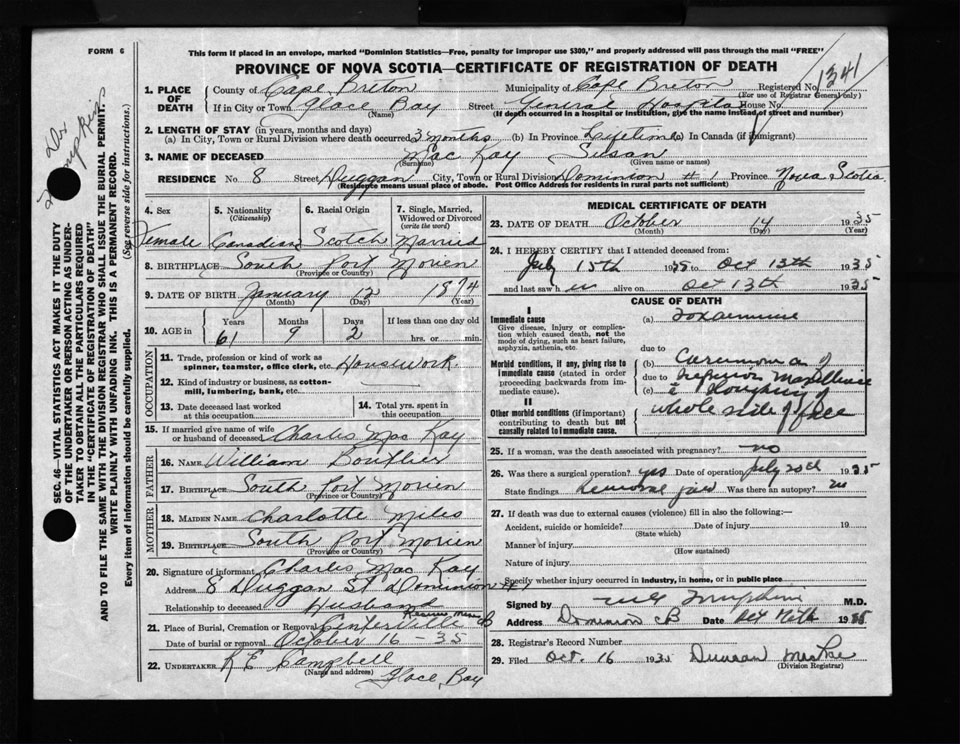 FORM 6
This form if placed in an envelope, marked "Dominion Statistics—Free, penalty for improper use $300," and properly addressed will pass through the mail "FREE"
PROVINCE OF NOVA SCOTIA—CERTIFICATE OF REGISTRATION OF DEATH
1341
1. PLACE OF DEATH County of Cape Breton Municipality of Cape Breton Registered No.
(For use of Registrar General only)
If in City or Town Glace Bay Street General Hospital House No.
(Name) (If death occurred in a hospital or institution, give the name instead of street and number)
2. LENGTH OF STAY (in years, months and days)
(a) In City, Town or Rural Division where death occurred 3 months (b) In Province Lifetime (c) In Canada (if immigrant)
3. NAME OF DECEASED Mac Kay Susan
(Surname) (Given name or names)
RESIDENCE No. 8 Street Duggan City, Town or Rural Division Dominion # 1 Province Nova Scotia
(Residence means usual place of abode. Post Office Address for residents in rural parts not sufficient)
4. Sex
Female
5. Nationality
(Citizenship)
Canadian
6. Racial Origin
Scotch
7. Single, Married, Widowed or Divorced
(write the word)
Married
8. BIRTHPLACE South Port Morien
(Province or Country)
9. DATE OF BIRTH January 12 1874
(Month) (Day) (Year)
10. AGE in Years Months Days If less than one day old
61 9 2 hrs. or min.
OCCUPATION
11. Trade, profession or kind of work as spinner, teamster, office clerk, etc. Housework.
12. Kind of industry or business, as cotton-mill, lumbering, bank, etc.
13. Date deceased last worked at this occupation
14. Total yrs. spent in this occupation
15. If married give name of wife or husband of deceased Charles Mac Kay
FATHER
16. Name William Boutlier
17. Birthplace South Port Morien
(Province or Country)
MOTHER
18. Maiden Name Charlotte Miles
19. Birthplace South Port Morien
(Province or Country)
20. Signature of informant Charles Mac Kay
Address 8 Duggan St Dominion #1
Relationship to deceased Husband
21. Place of Burial, Cremation or Removal Centerville CB
Date of burial or removal October 16 - 35
22. UNDERTAKER R E Campbell
(Name and address)
Glace Bay
MEDICAL CERTIFICATE OF DEATH
23. DATE OF DEATH October 14 1935
(Month) (Day) (Year)
24. I HEREBY CERTIFY that I attended deceased from:
July 15th 1935 to Oct 13th 1935
and last saw h er alive on Oct 13th 1935
CAUSE OF DEATH
I
Immediate cause
Give disease, injury or complication which caused death, not the mode of dying, such as heart failure, asphyxia, asthenia, etc.
(a) Toxaemia
due to
Morbid conditions, if any, giving rise to immediate cause (stated in order proceeding backwards from immediate cause).
(b) Carcinoma of
due to superior
(c) Sloughing of
whole side of face
II
Other morbid conditions (if important) contributing to death but not causally related to immediate cause.
25. If a woman, was the death associated with pregnancy? no
26. Was there a surgical operation? yes Date of operation July 1935
State findings Removal jaw Was there an autopsy? no
27. If death was due to external causes (violence) fill in also the following:—
Accident, suicide or homicide? Date of injury 19
(State which)
Manner of injury
(How sustained)
Nature of injury
Specify whether injury occurred in industry, in home, or in public place
Signed by M.D.
Address Dominion CB Date Oct 1935
28. Registrar's Record Number
29. Filed Oct. 16 1935 Duncan
(Division Registrar)
Dr Tompkins
SEC. 46—VITAL STATISTICS ACT MAKES IT THE DUTY OF THE UNDERTAKER OR PERSON ACTING AS UNDERTAKER TO OBTAIN ALL THE PARTICULARS REQUIRED IN THE "CERTIFICATE OF REGISTRATION OF DEATH"
AND TO FILE THE SAME WITH THE DIVISION REGISTRAR WHO SHALL ISSUE THE BURIAL PERMIT.
WRITE PLAINLY WITH UNFADING INK. THIS IS A PERMANENT RECORD.
Every item of information should be carefully supplied. (See reverse side for instructions.)